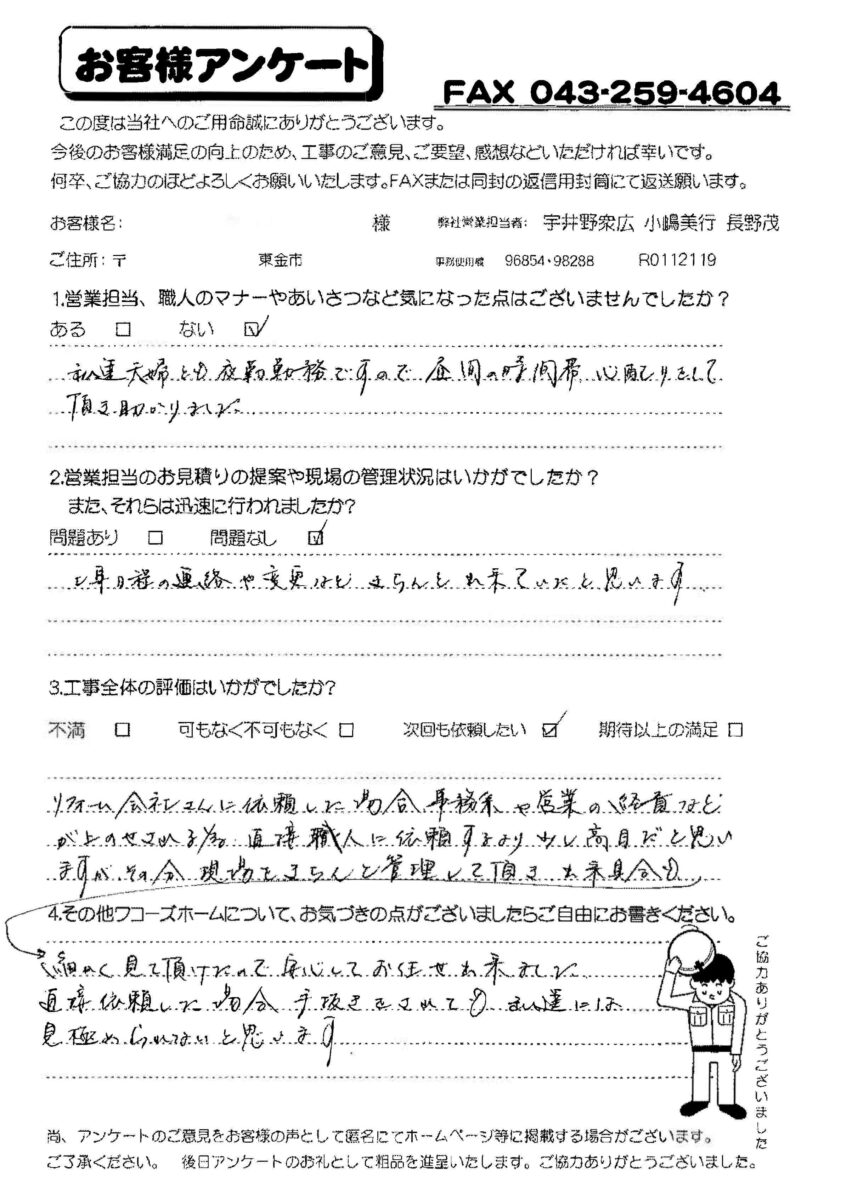 お客様アンケート
FAX 043-259-4604
この度は当社へのご用命誠にありがとうございます。
今後のお客様満足の向上のため、工事のご意見、ご要望、感想などいただければ幸いです。
何卒、ご協力のほどよろしくお願いいたします。FAXまたは同封の返信用封筒にて返送願います。
お客様名: 様 弊社営業担当者: 宇井野衆広 小嶋美行 長野茂
ご住所:〒 東金市 事務使用欄 96854・98288 R0112119
1.営業担当、職人のマナーやあいさつなど気になった点はございませんでしたか?
ある □ ない ☑
私達夫婦とも夜勤勤務ですので昼間の時間帯、心配りをして
頂き助かりました
2.営業担当のお見積りの提案や現場の管理状況はいかがでしたか?
また、それらは迅速に行われましたか?
問題あり □ 問題なし ☑
工事日程の連絡や変更など きちんと出来ていたと思います
3.工事全体の評価はいかがでしたか?
不満 □ 可もなく不可もなく □ 次回も依頼したい ☑ 期待以上の満足 □
リフォーム会社さんに依頼した場合 事務系や営業の経費など
が上のせされる為 直接職人に依頼するより少し高目だと思い
ますが その分 現場をきちんと管理して頂き 出来具合も
4.その他ワコーズホームについて、お気づきの点がございましたらご自由にお書きください。
細かく見て頂けたので安心してお任せ出来ました
直接依頼した場合 手抜きをされても 私達には
見極められないと思います
ご協力ありがとうございました
尚、アンケートのご意見をお客様の声として匿名にてホームページ等に掲載する場合がございます。
ご了承ください。 後日アンケートのお礼として粗品を進呈いたします。ご協力ありがとうございました。